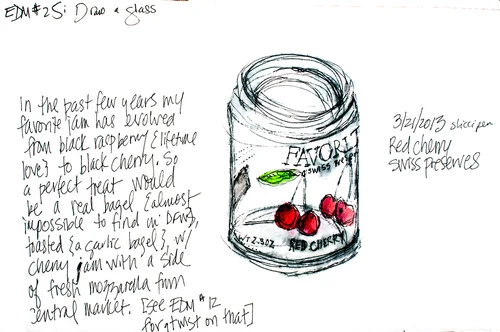 EDM #25: Draw a glass
in the past few years my
favorite jam has evolved
from black raspberry {lifetime
love} to black cherry. So
a perfect treat would
be a real bagel {almost
impossible to find in DFW},
toasted {a garlic bagel}, w/
cherry jam with a side
of fresh mozzarella from
central market. [see EDM #12
for a twist on that]
FAVORIT
swiss preser
WT 2.3OZ.
RED CHERRY
3/21/2013 slicci pen
Red cherry
swiss preserves